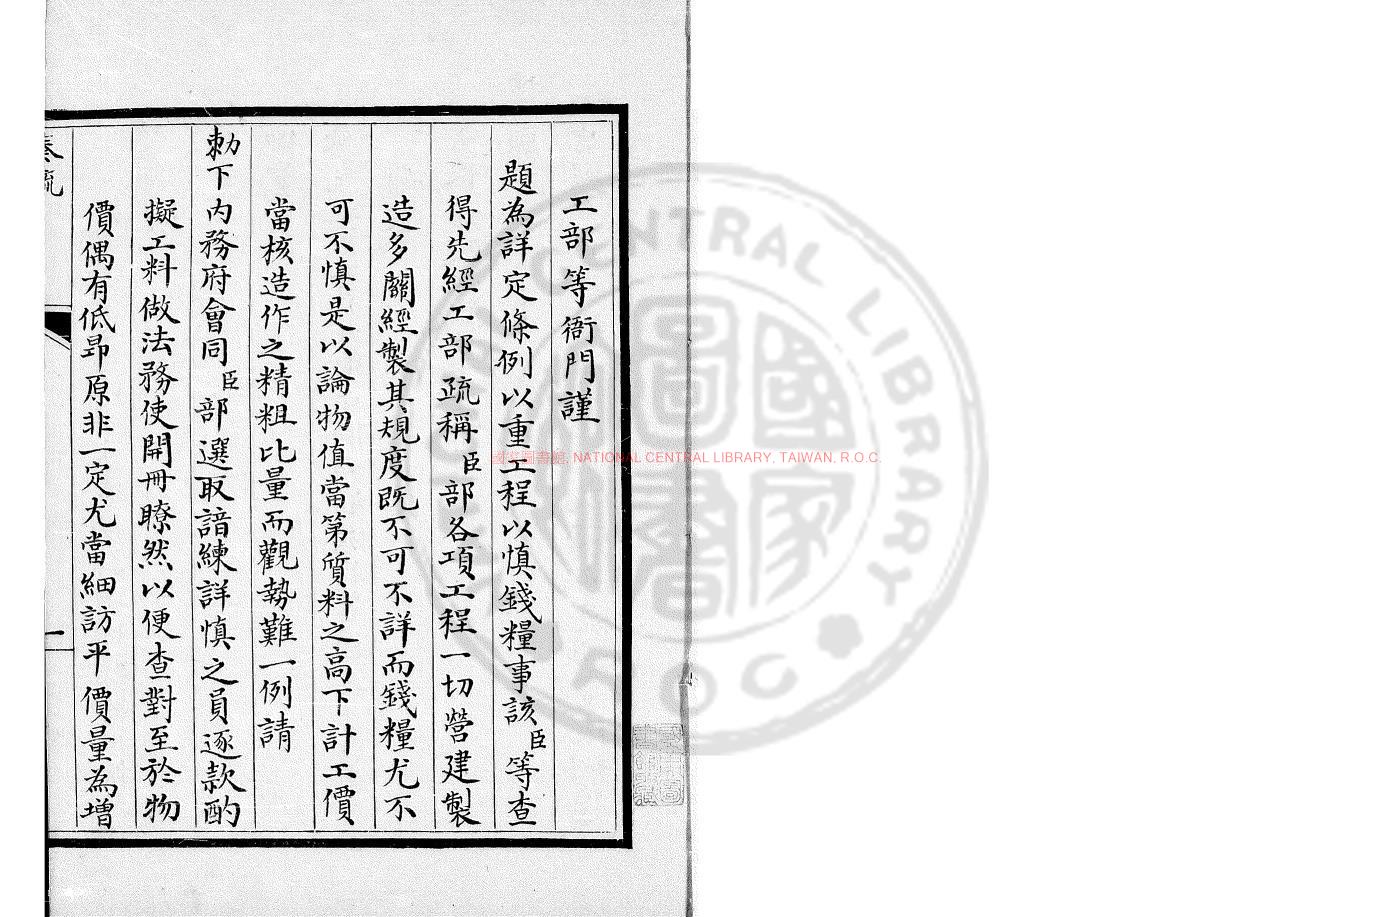 工部等衙門謹
題為詳定條例以重工程以慎錢糧事該臣等查
得先經工部疏稱臣部各項工程一切營建製
造多關經製其規度既不可不詳而錢糧尤不
可不慎是以論物值當第質料之高下計工價
當核造作之精粗比量而觀勢難一例請
勅下內務府會同臣部選取諳練詳慎之員逐款酌
擬工料做法務使開冊瞭然以便查對至於物
價偶有低昻原非一定尤當細訪平價量為增
奏疏
一
國家圖書館, NATIONAL CENTRAL LIBRARY, TAIWAN, R.O.C.